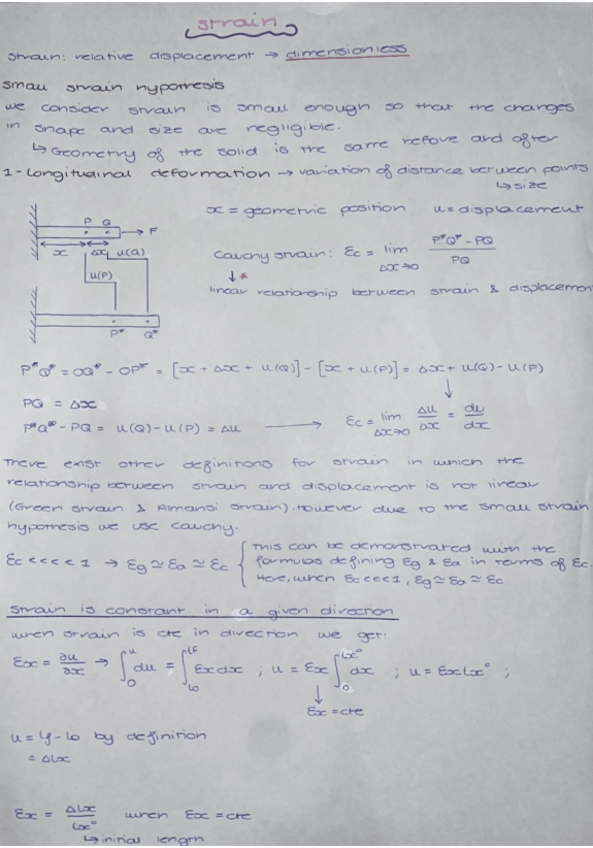 strain
strain: relative displacement → dimensionless
small strain hypothesis
we consider strain is small enough so that the changes
in shape and size are negligible.
↳ Geometry of the solid is the same before and after
1- Longitudinal deformation → variation of distance between points
↳ size
x = geometric position u = displacement
P Q → F
x Δx u(Q)
u(P)
P* Q*
Cauchy strain: Ec = lim Δx→0 (P*Q* - PQ) / PQ
↓*
linear relationship between strain & displacement
P*Q* = OQ* - OP* = [x + Δx + u(Q)] - [x + u(P)] = Δx + u(Q) - u(P)
PQ = Δx
P*Q* - PQ = u(Q) - u(P) = Δu → Ec = lim Δx→0 Δu/Δx = du/dx
There exist other definitions for strain in which the
relationship between strain and displacement is not linear
(Green strain & Almansi strain). However due to the small strain
hypothesis we use cauchy.
Ec <<<< 1 → Eg ≃ Ea ≃ Ec { This can be demonstrated with the
formulas defining Eg & Ea in terms of Ec.
Here, when Ec <<< 1, Eg ≃ Ea ≃ Ec
Strain is constant in a given direction
when strain is cte in direction we get:
Ex = ∂u/∂x → ∫₀ᵘ du = ∫ Lo Lf Ex dx ; u = Ex ∫₀ Lx° dx ; u = Ex Lx° ;
↓
Ex = cte
u = Lf - Lo by definition
= ΔLx
Ex = ΔLx / Lx° when Ex = cte
↳ initial length